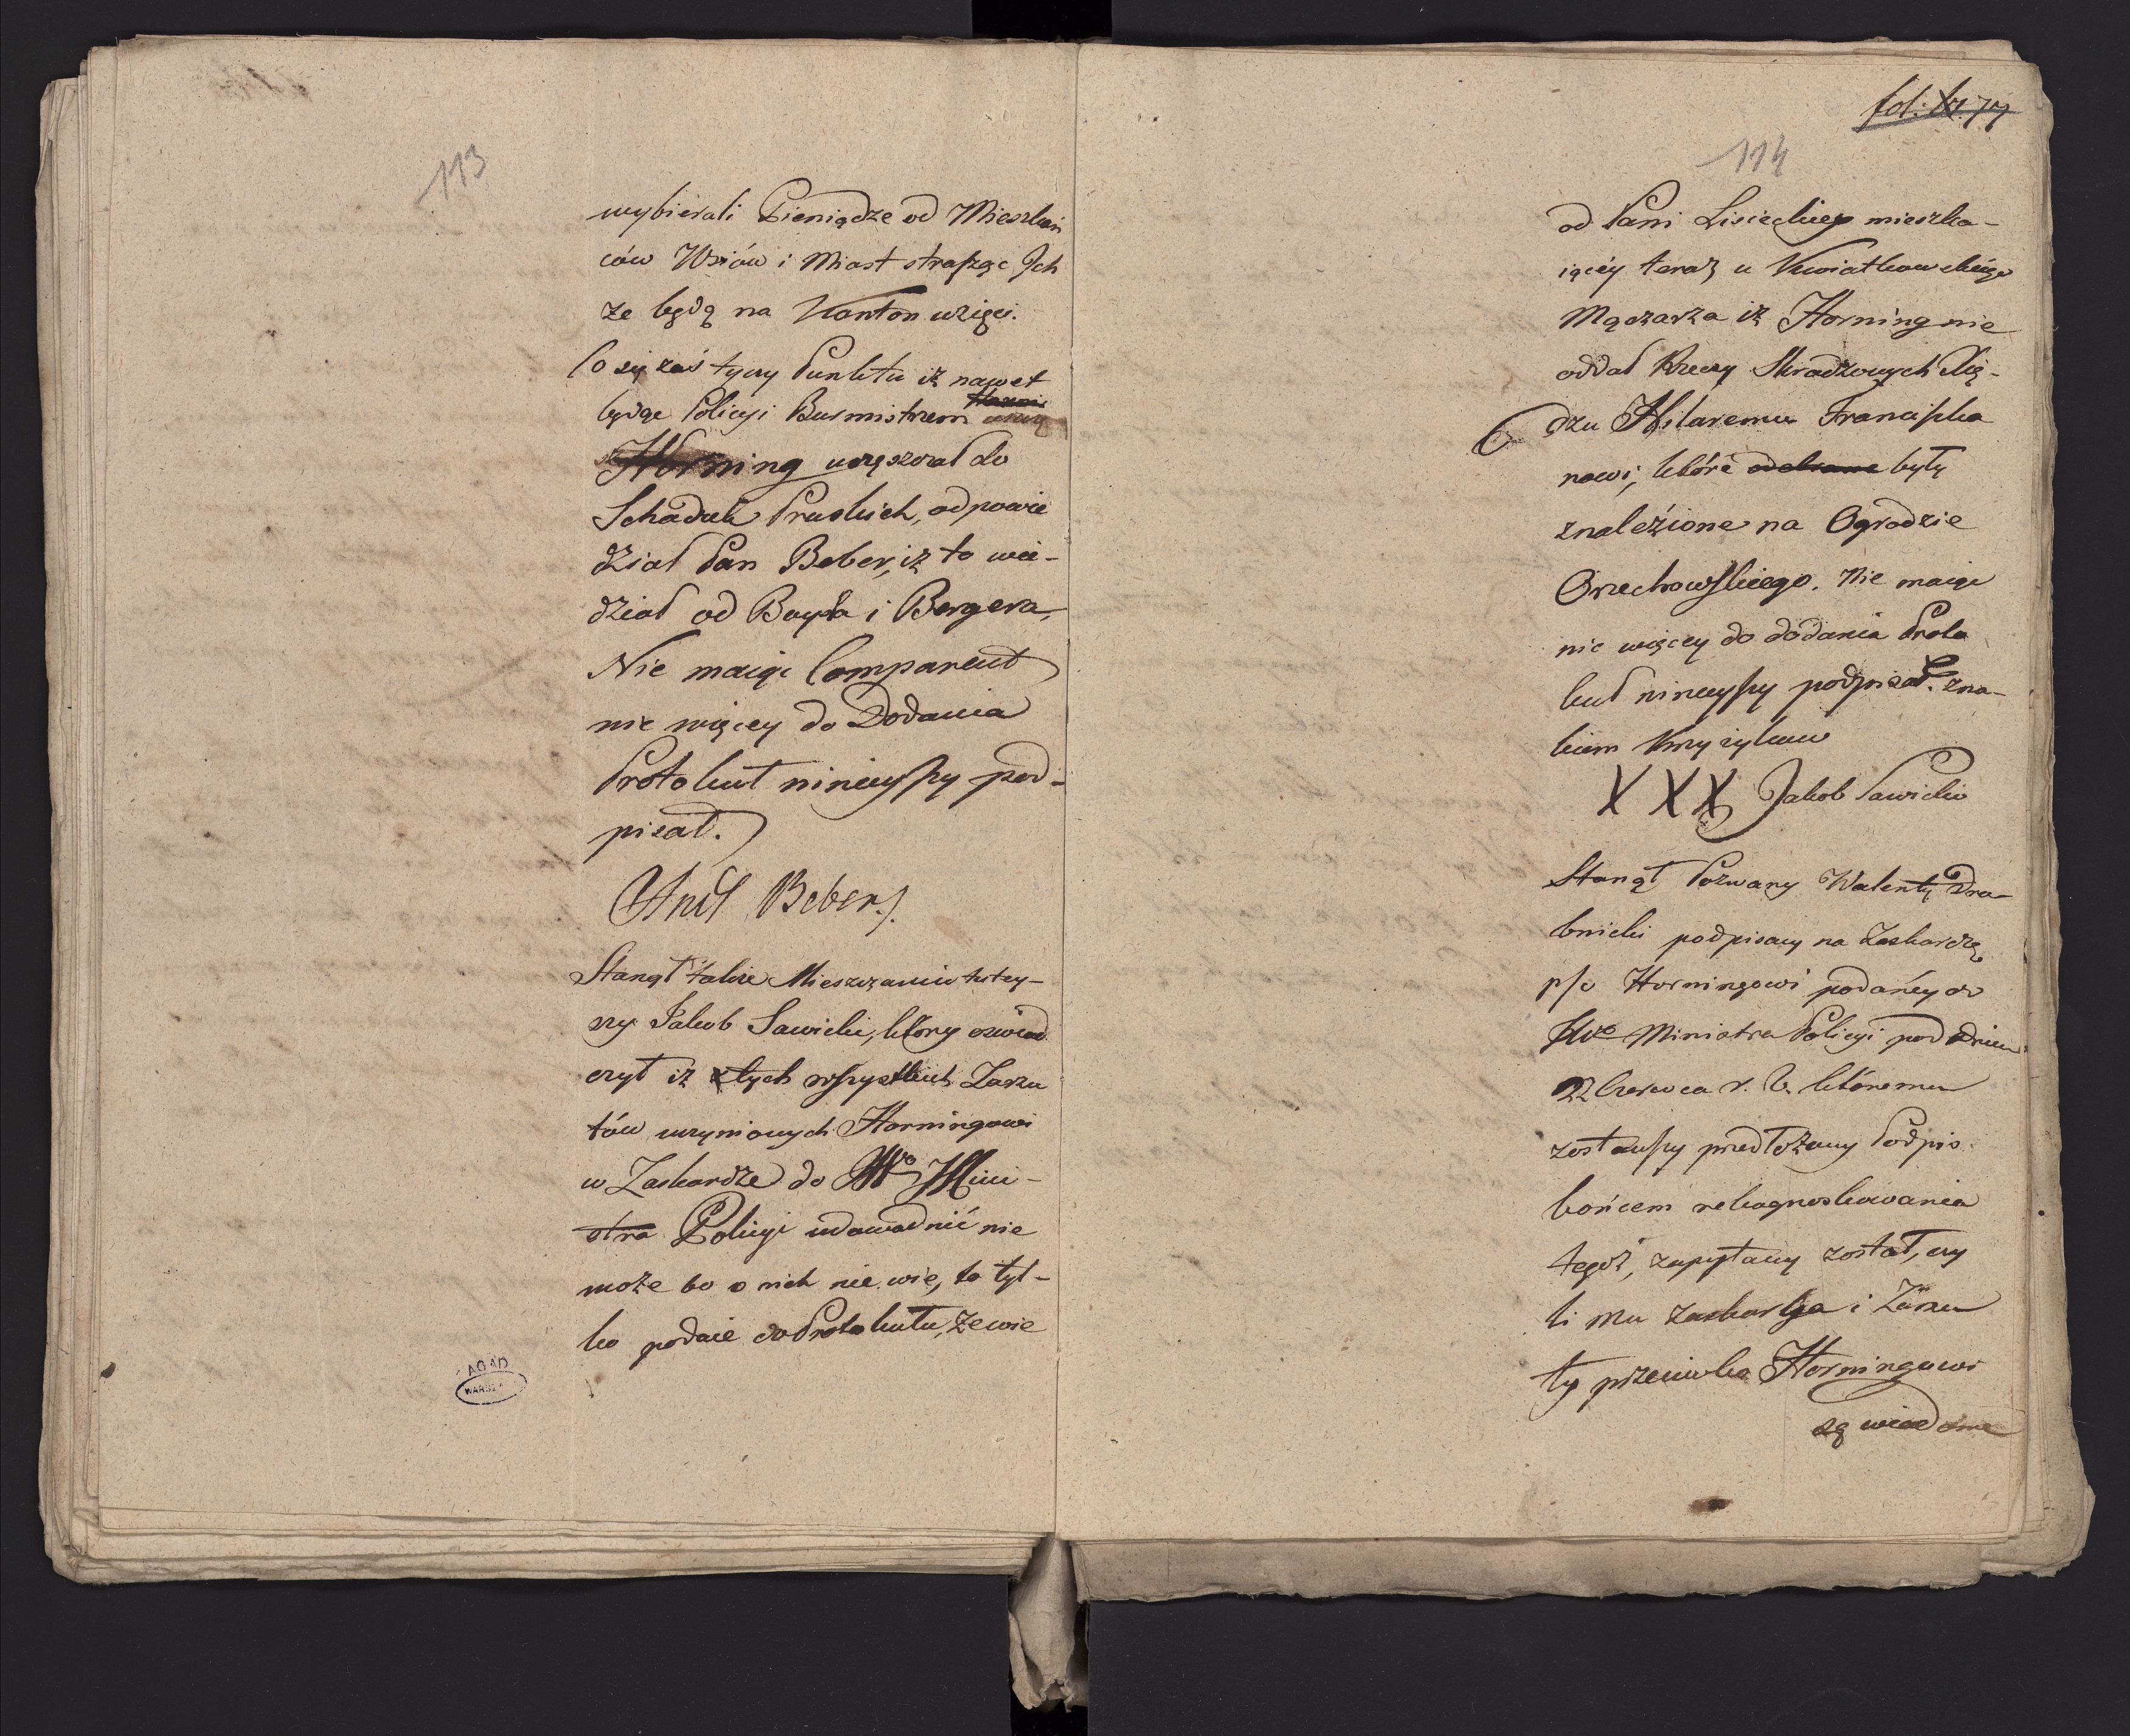 113
wybierali Pieniądze od Mieszkań
ców Wsiów i Miast strasząc Ich
ze będą na Kanton wzięci.
Co się zaś tyczy Punktu iż nawet
będąc Policyi Burmistrzem
Horning uczęszczał do
Schadzek Pruskich, odpowie
dział Pan Beber, iż to wie-
dział od Bayla i Bergera,
Nie maiąc Comparent
nic więcey do Dodania
Protokuł ninieyszy pod-
pisał.
Beber.
Stanął także Mieszczanin tutey-
szy Jakob Sawicki, ktory oswiad
czył iż tych wszystkich Zarzu
tów uczynionych Horningowi
w Zaskardze do Wo Mini-
stra Policyi udowodnić nie
może bo o nich nie wie, to tyl-
ko podaie do Protokułu, ze wie
AGAD
WARSZ
fol: 77
114
od Pani Lisieckiey mieszka-
iącéy teraz u Kwiatkowskiego
Mączarza iż Horning nie
oddał Rzeczy Skradzonych Xię-
dzu Hilaremu Franciszka
nowi, które odebrane były
znaleźione na Ogrodzie
Orzechowskiego. Nie maiąc
nic więcey do dodania Proto
kuł ninieyszy podpisał zna-
kiem Krzyżykow
X X X Jakob Sawicki
Stanął Pozwany Walenty Dra-
bnicki podpisany na Zaskardzę
p/o Horningowi podanéy do
JWo Ministra Policyi pod dniem
22 Czerwca r. b. któremu
zostawszy przedłożony Podpis
końcem rekognoskowania
tegoż, zapytany został, czy
li mu zaskarga i Zarzu
ty przeciwko Horningowi
są wiadome